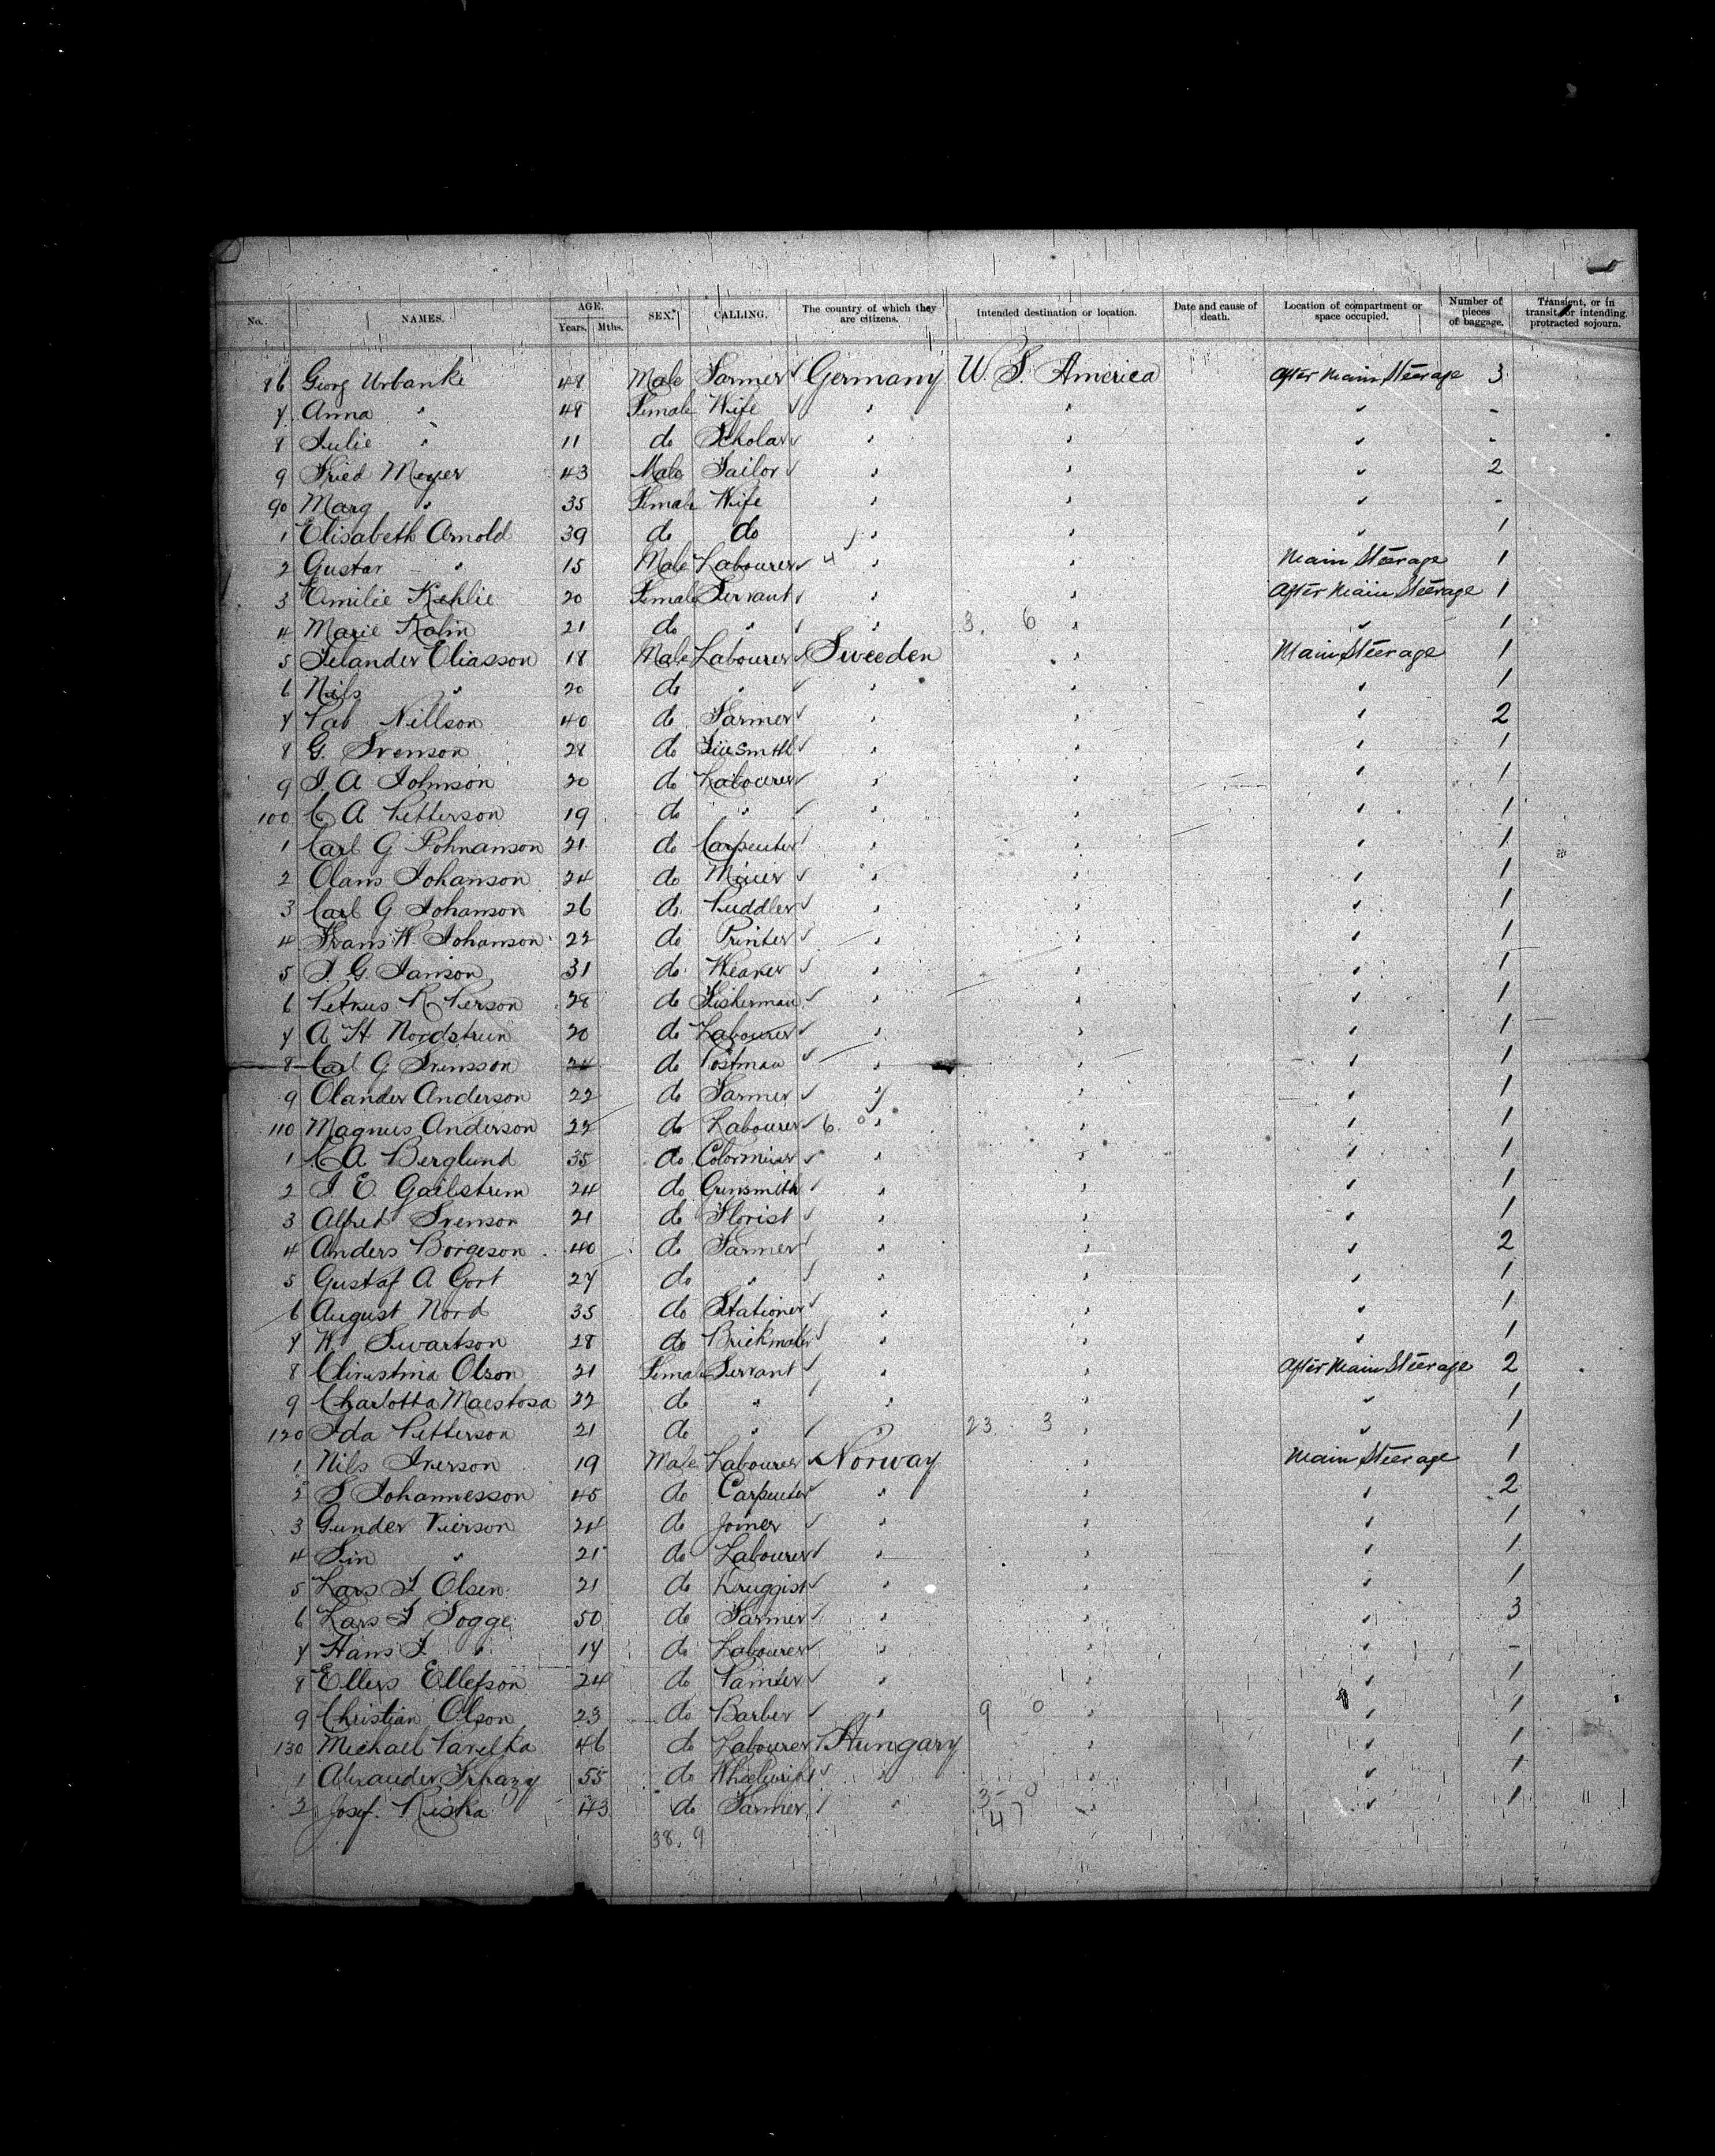 No. NAMES. AGE. Years. Mths. SEX. CALLING. The country of which they are citizens. Intended destination or location. Date and cause of death. Location of compartment or space occupied. Number of pieces of baggage. Transient, or in transit, or intending protracted sojourn.
86 Georg Urbanke 48 Male Farmer Germany U.S. America After Main Steerage 3
7 Anna " 48 Female Wife " " " -
8 Julie " 11 do Scholar " " " -
9 Fried Meyer 43 Male Tailor " " " 2
90 Marg " 35 Female Wife " " " -
1 Elisabeth Arnold 39 do do " " " 1
2 Gustav " 15 Male Labourer 4 " " Main Steerage 1
3 Emilie Kehlie 20 Female Servant " " After Main Steerage 1
4 Marie Kalin 21 do " " 3. 6 " " 1
5 Eliasson 18 Male Labourer Sweeden " Main Steerage 1
6 Nils " 20 do " " " " 1
7 Nillson 40 do Farmer " " " 2
8 G. Svenson 28 do " " " 1
9 J. A Johnson 20 do Labourer " " " 1
100 C A Petterson 19 do " " " " 1
1 Carl G 21 do Carpenter " " " 1
2 Olans Johanson 24 do Miner " " " 1
3 Carl G Johanson 26 do Puddler " " " 1
4 Frans W. Johanson 22 do Printer " " " 1
5 J. G. Janson 31 do Weaver " " " 1
6 Petrus Person 28 do Fisherman " " " 1
7 A H Nordstrum 20 do Labourer " " " 1
8 Carl G Svensson 24 do Postman " " " 1
9 Olander Anderson 22 do Farmer " " 1
110 Magnus Anderson 22 do Labourer 6. 0 " " " 1
1 C A Berglund 35 do " " " 1
2 J. E. Gailstrum 24 do Gunsmith " " " 1
3 Alfred Svenson 21 do Florist " " " 1
4 Anders Borgeson 40 do Farmer " " " 2
5 Gustaf A Gort 27 do " " " " 1
6 August Nord 35 do Stationer " " " 1
7 W. Swartson 28 do Brickmaker " " " 1
8 Christina Olson 21 Female Servant " " After Main Steerage 2
9 Charlotta Maestosa 22 do " " " 1
120 Ida Petterson 21 do " " 23 3 " " 1
1 Nils Iverson 19 Male Labourer Norway " Main Steerage 1
2 S Johannesson 45 do Carpenter " " " 2
3 Gunder Pierson 24 do Joiner " " " 1
4 Sin " 21 do Labourer " " " 1
5 Lars J Olsen 21 do Druggist " " " 1
6 Lars J Sogge 50 do Farmer " " " 3
7 Hans J. " 17 do Labourer " " " -
8 Ellers Ellefson 24 do Painter " " " 1
9 Christian Olson 23 do Barber " 9 0 " " 1
130 Michael Pavelka 46 do Labourer Hungary " " 1
1 Alexander 55 do Wheelwright " " " 1
2 Josef Riska 43 do Farmer " 3 0 " " 1
38. 9 47